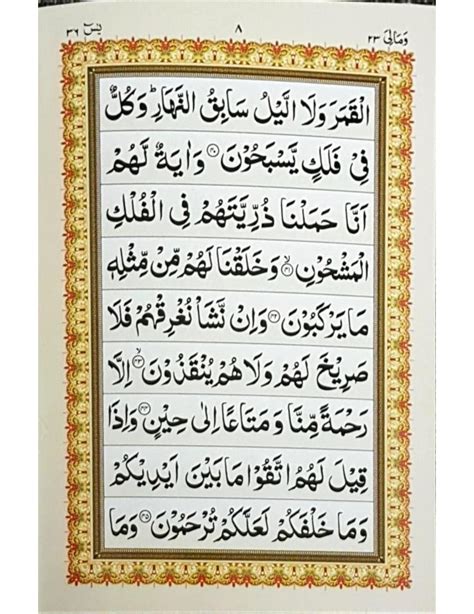 وَمَالِیَ ٢٣ ٨ یٰسٓ ٣٦
الْقَمَرَ وَلَا الَّیْلُ سَابِقُ النَّهَارِؕ وَكُلٌّ
فِیْ فَلَكٍ یَّسْبَحُوْنَ ﴿٤٠﴾ وَاٰیَةٌ لَّهُمْ
اَنَّا حَمَلْنَا ذُرِّیَّتَهُمْ فِی الْفُلْكِ
الْمَشْحُوْنِۙ ﴿٤١﴾ وَخَلَقْنَا لَهُمْ مِّنْ مِّثْلِهٖ
مَا یَرْكَبُوْنَ ﴿٤٢﴾ وَاِنْ نَّشَاْ نُغْرِقْهُمْ فَلَا
صَرِیْخَ لَهُمْ وَلَا هُمْ یُنْقَذُوْنَۙ ﴿٤٣﴾ اِلَّا
رَحْمَةً مِّنَّا وَمَتَاعًا اِلٰی حِیْنٍ ﴿٤٤﴾ وَاِذَا
قِیْلَ لَهُمُ اتَّقُوْا مَا بَیْنَ اَیْدِیْكُمْ
وَمَا خَلْفَكُمْ لَعَلَّكُمْ تُرْحَمُوْنَ ﴿٤٥﴾ وَمَا